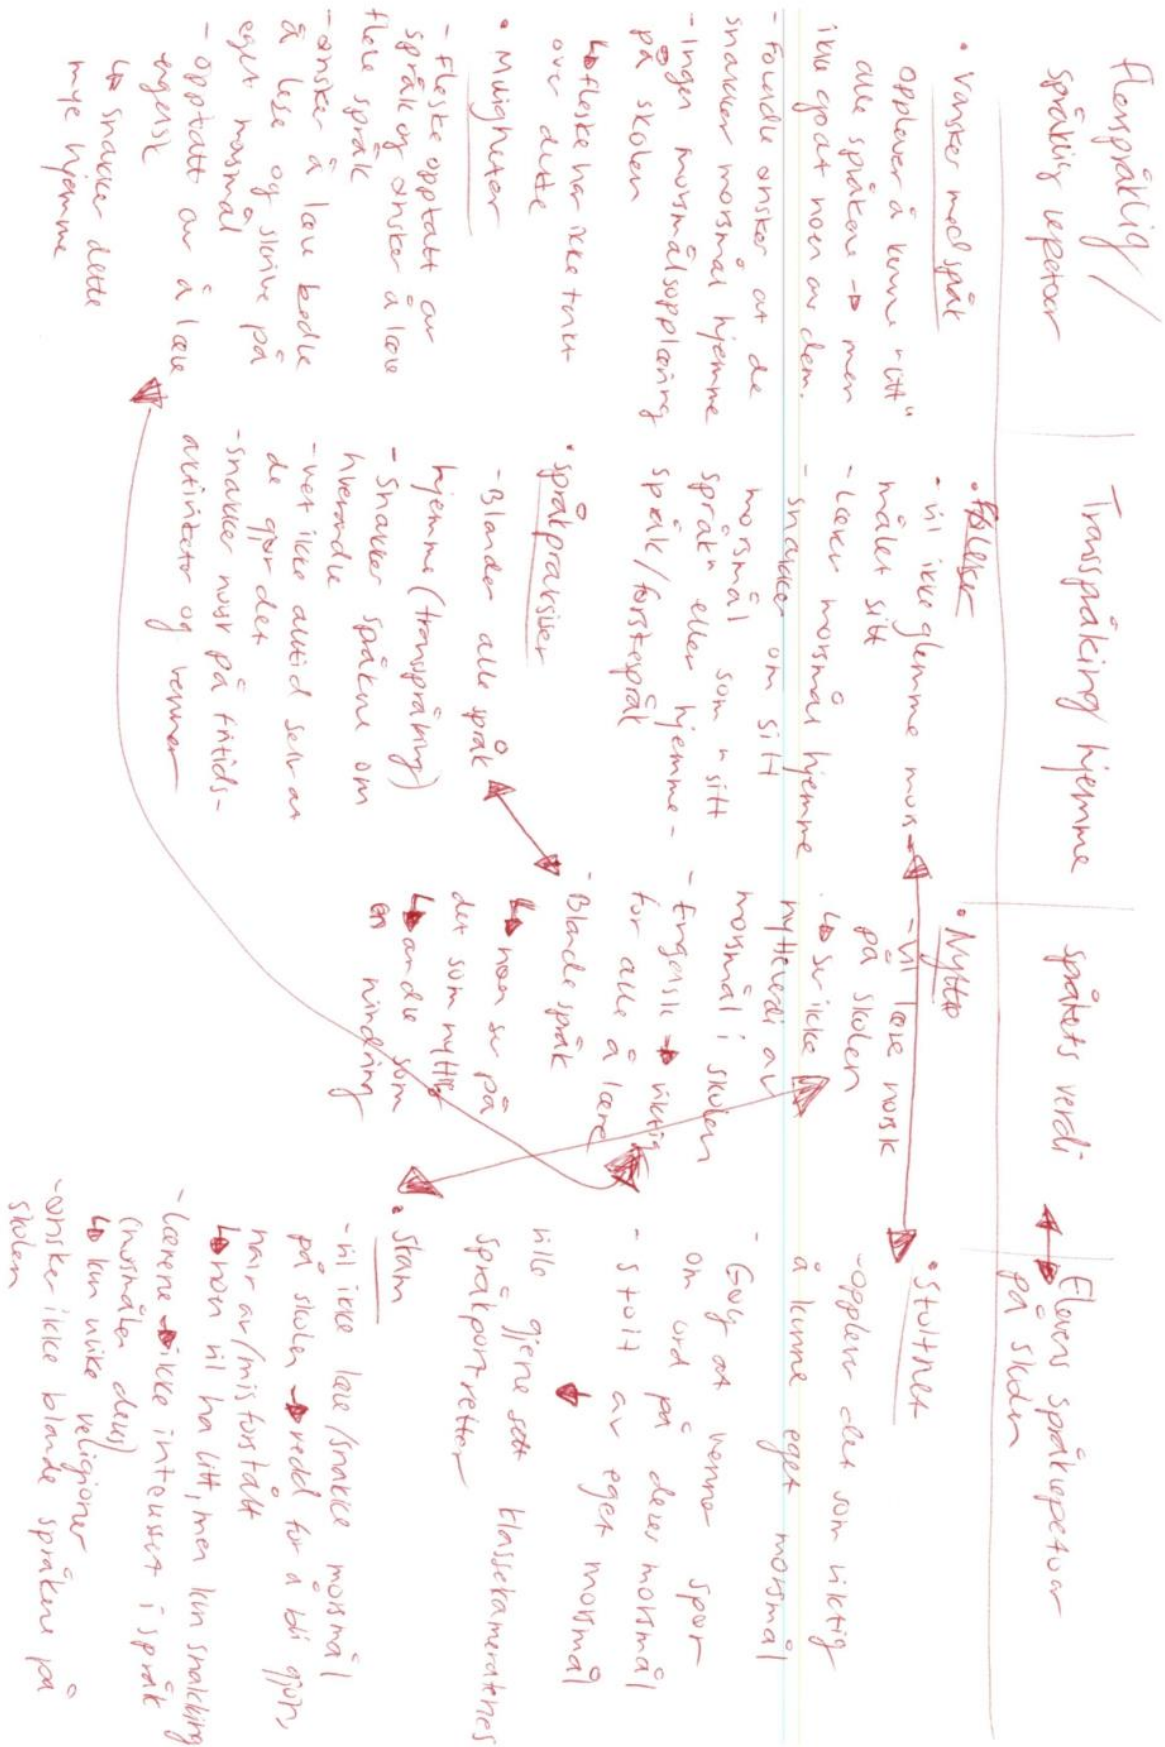 Flerspråklig/
språklig repetoar
• Vansker med språk
opplever å kunne "litt"
alle språkene → men
ikke godt noen av dem.
- Foreldre ønsker at de
snakker morsmål hjemme
- Ingen morsmålsopplæring
på skolen
↳ fleske har ikke tenkt
over dette
• Muligheter
- Fleske opptatt av
språk og ønsker å lære
flere språk
- ønsker å lære bedre
å lese og skrive på
eget morsmål
- opptatt av å lære
engelsk
↳ snakker dette
mye hjemme
Transspråking hjemme
- vil ikke glemme mors-
målet sitt
- Lærer morsmål hjemme
- snakker om sitt
morsmål som "sitt
språk" eller hjemme-
språk/førstespråk
• Språkpraksiser
- Blander alle språk
hjemme (transspråking)
- Snakker språkene om
hverandre
- vet ikke alltid selv at
de gjør det
- snakker norsk på fritids-
aktiviteter og venner
språkets verdi
• Nytte
- Vil lære norsk
på skolen
↳ ser ikke
nytteverdi av
morsmål i skolen
- Engelsk → viktig
for alle å lære
- Blande språk
↳ noen ser på
det som nyttig
↳ andre som
en hindring
Elevens språkrepetoar
på skolen
• Stolthet
- opplever det som viktig
å kunne eget morsmål
- Gøy at venner spør
om ord på deres morsmål
- Stolt av eget morsmål
ville gjerne sett klassekameratenes
språkportretter
• Skam
- vil ikke lære/snakke morsmål
på skolen → redd for å bli gjort
narr av/misforstått
↳ noen vil ha litt, men kun snakking
- Lærerne → ikke interessert i språk
(morsmålen deres)
↳ kun ulike religioner
- ønsker ikke blande språkene på
skolen